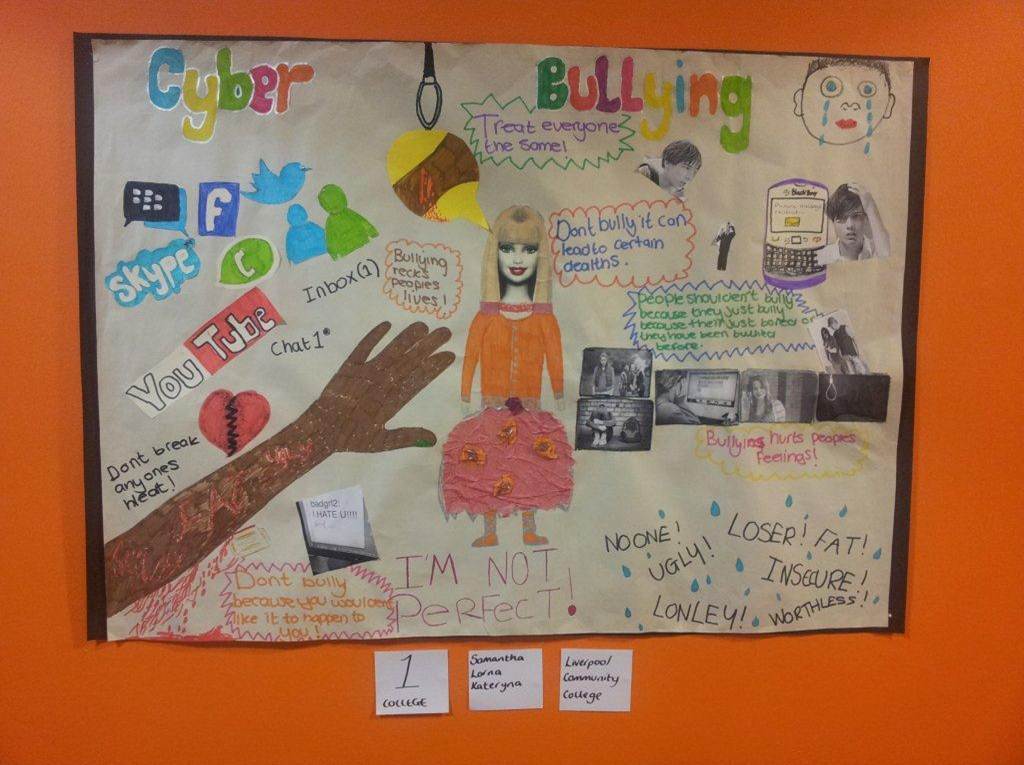 Cyber
Bullying
Treat everyone
the same!
F
Skype
C
YouTube
Inbox(1)
Chat 1
Bullying
recks
peoples
lives!
Dont bully it can
lead to certain
deaths.
BlackBerry
People shouldn't bully
because they just bully
before.
Bullying hurts peoples
feelings!
Dont break
anyones
Heat!
UgLy
FAT
badgrl2:
I HATE U!!!!
Dont bully
because you wouldent
like it to happen to
you!
I'M NOT
PERFECT!
NO ONE!
UGLY!
LONLEY!
LOSER! FAT!
INSECURE!
WORTHLESS!
1
COLLEGE
Samantha
Lorna
Kateryna
Liverpool
Community
College